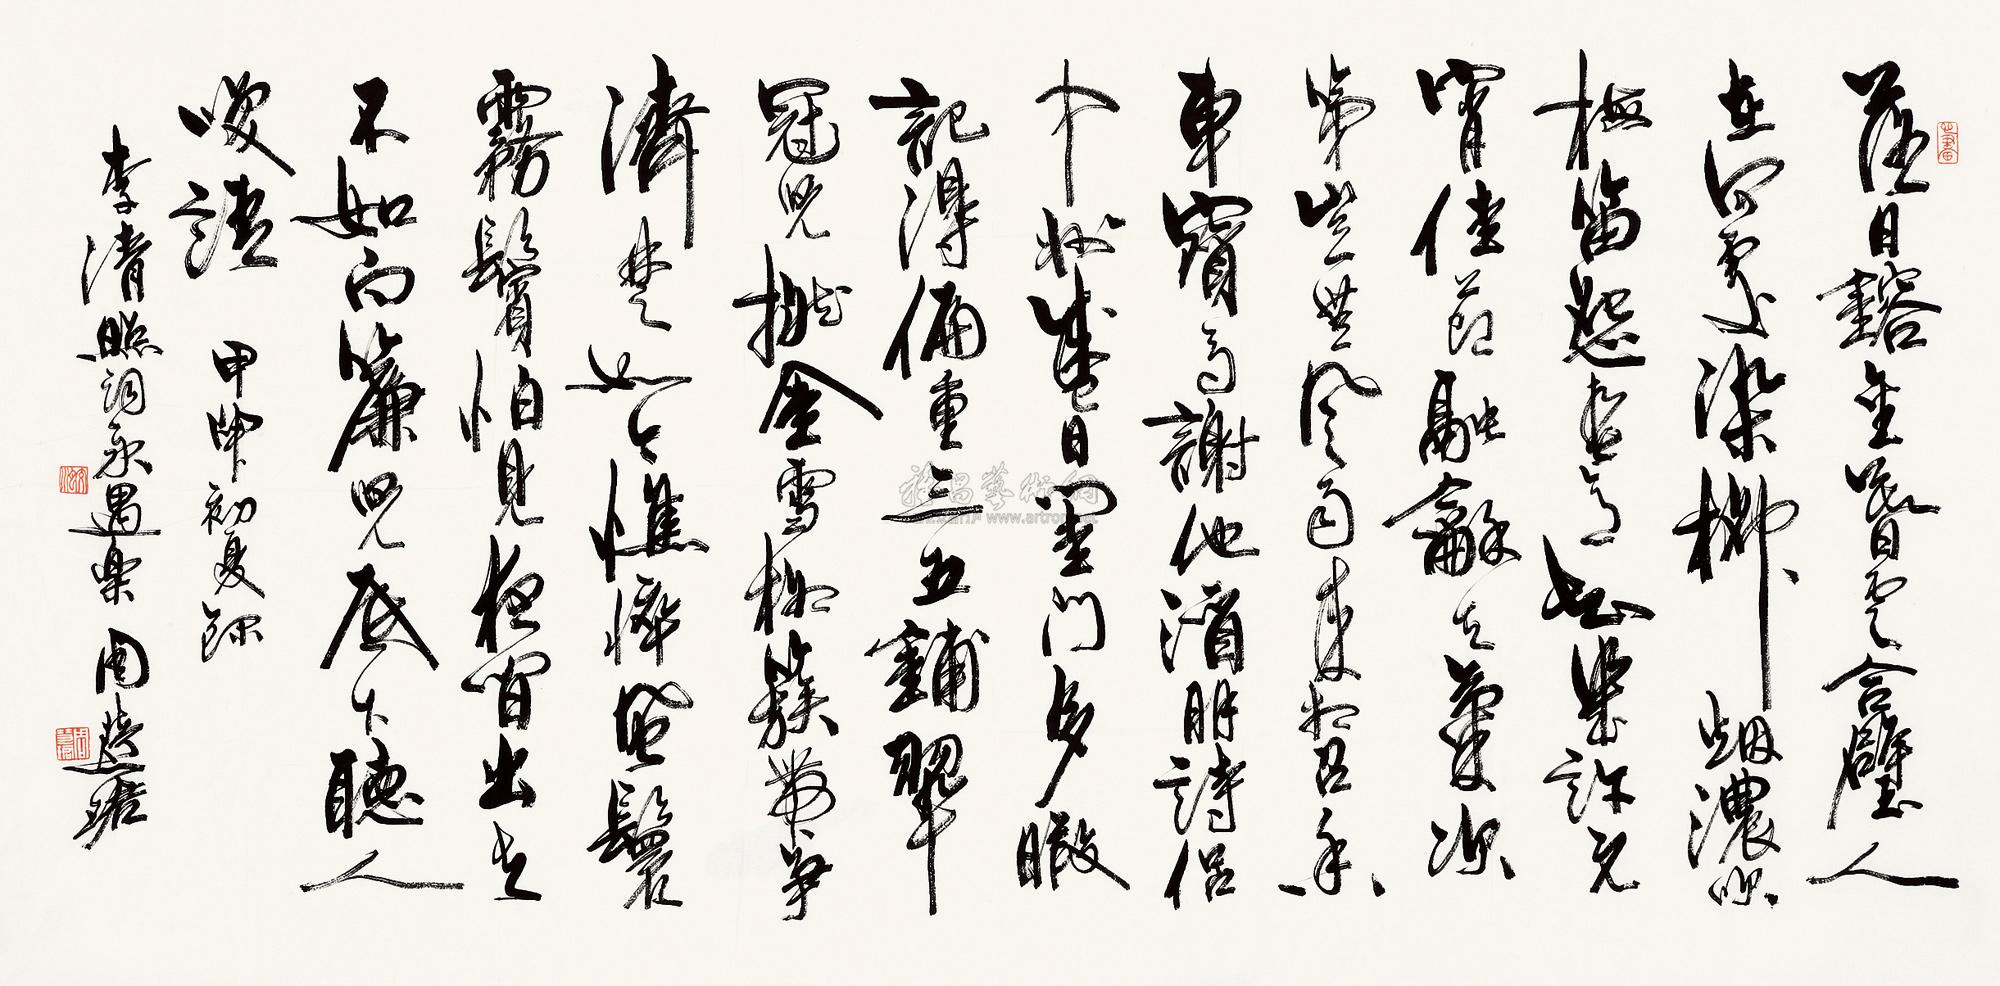 落日鎔金暮雲合璧人
在何處染柳烟濃吹
梅笛怨春意知幾許元
宵佳節融龢天氣次
第豈無風雨來相召香
車寶馬謝他酒朋詩侶
中州盛日閨門多暇
記得偏重三五鋪翠
冠兒撚金雪柳簇帶爭
濟楚如今憔悴風鬟
霧鬢怕見夜間出去
不如向簾兒底下聽人
笑語 甲申初夏錄
李清照詞永遇樂 周慧珺
雅昌藝術網
www.artron.net